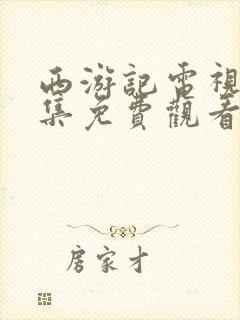 西游記電視
集免費觀看
房家才